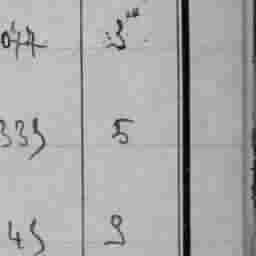 077 3
335 5
45 9